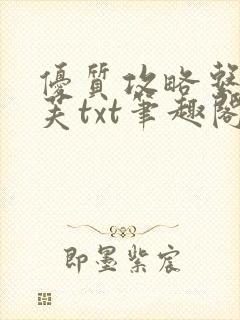 優質攻略整
芙txt筆趣閣
即墨紫宸